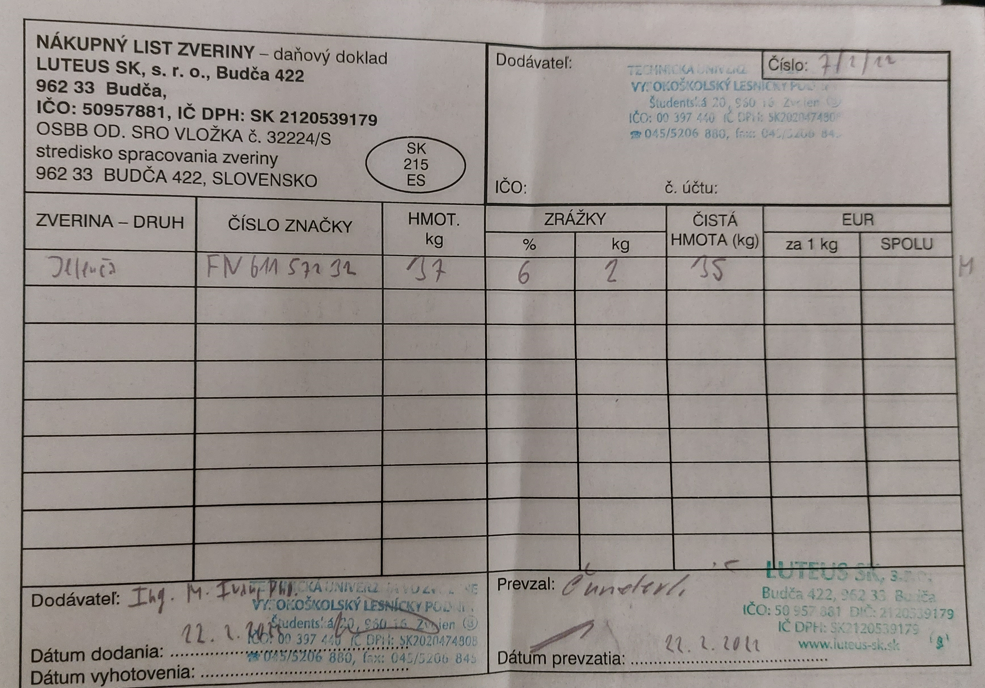 NÁKUPNÝ LIST ZVERINY – daňový doklad
LUTEUS SK, s. r. o., Budča 422
962 33 Budča,
IČO: 50957881, IČ DPH: SK 2120539179
OSBB OD. SRO VLOŽKA č. 32224/S
stredisko spracovania zveriny
962 33 BUDČA 422, SLOVENSKO
SK
215
ES
Dodávateľ:
Číslo: 7/2/22
TECHNICKÁ UNIVERZ
VYSOKOŠKOLSKÝ LESNÍCKY
Študentská 20, 960 Zvolen
IČO: 00 397 440 IČ DPH: SK20204748
☎ 045/5206 880, fax: 045/5206 84
IČO: č. účtu:
ZVERINA – DRUH ČÍSLO ZNAČKY HMOT. kg ZRÁŽKY ČISTÁ HMOTA (kg) EUR
% kg za 1 kg SPOLU
FN 611 572 32 37 6 2 35 M
Dodávateľ: Ing. M.
TECHNICKÁ UNIVERZ
VYSOKOŠKOLSKÝ LESNÍCKY
Študentská 20, 960 Zvolen
IČO: 00 397 440 IČ DPH: SK2020474808
☎ 045/5206 880, fax: 045/5206 845
Dátum dodania: 22. 2. 2022
Dátum vyhotovenia:
Prevzal:
LUTEUS SK, s.r.o.
Budča 422, 962 33 Budča
IČO: 50 957 881 DIČ: 2120539179
IČ DPH: SK2120539179
www.luteus-sk.sk
Dátum prevzatia: 22. 2. 2022